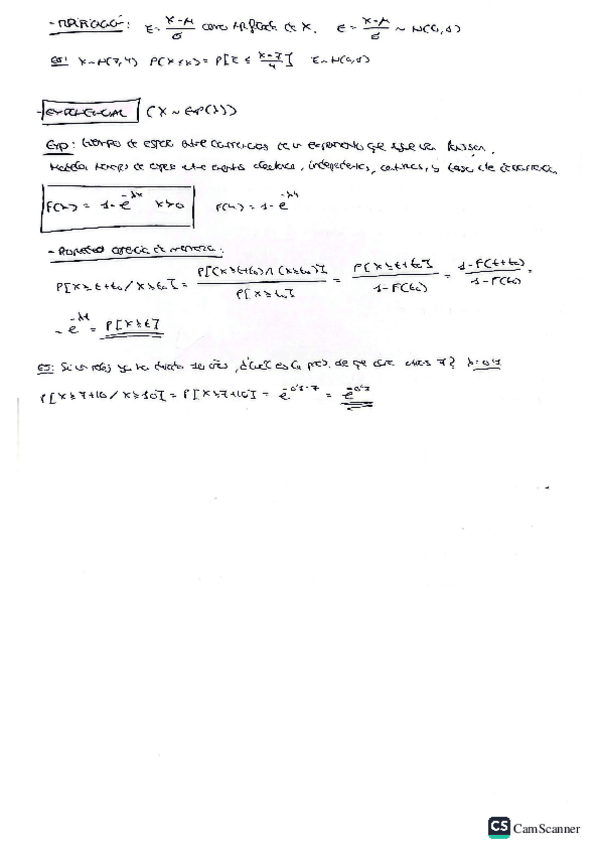 Z = X-μ/σ como tipificada de X. Z = X-μ/σ ~ N(0,1)
Ej: X~N(7,4) P[X≤x] = P[Z ≤ X-7/4] Z~N(0,1)
-EXPONENCIAL (X ~ EXP(λ))
Exp: tiempo de espera entre ocurrencias de un experimento que sigue una Poisson.
tiempo de espera entre eventos aleatorios, independientes, continuos, y tasa cte de ocurrencia
F(x) = 1-e^-λx x>0 F(x) = 1-e^-λx
- Propiedad ausencia de memoria:
P[X≥t+t₀/X≥t₀] = P[(X≥t+t₀)∩(X≥t₀)]/P[X≥t₀] = P[X≥t+t₀]/1-F(t₀) = 1-F(t+t₀)/1-F(t₀) =
= e^-λt = P[X≥t]
EJ: Si un reloj ya ha durado 10 años, ¿cuál es la prob. de que dure otros 7? λ=0'1
P[X≥7+10/X≥10] = P[X≥7+10] = e^-0'1·7 = e^-0'7
CS CamScanner